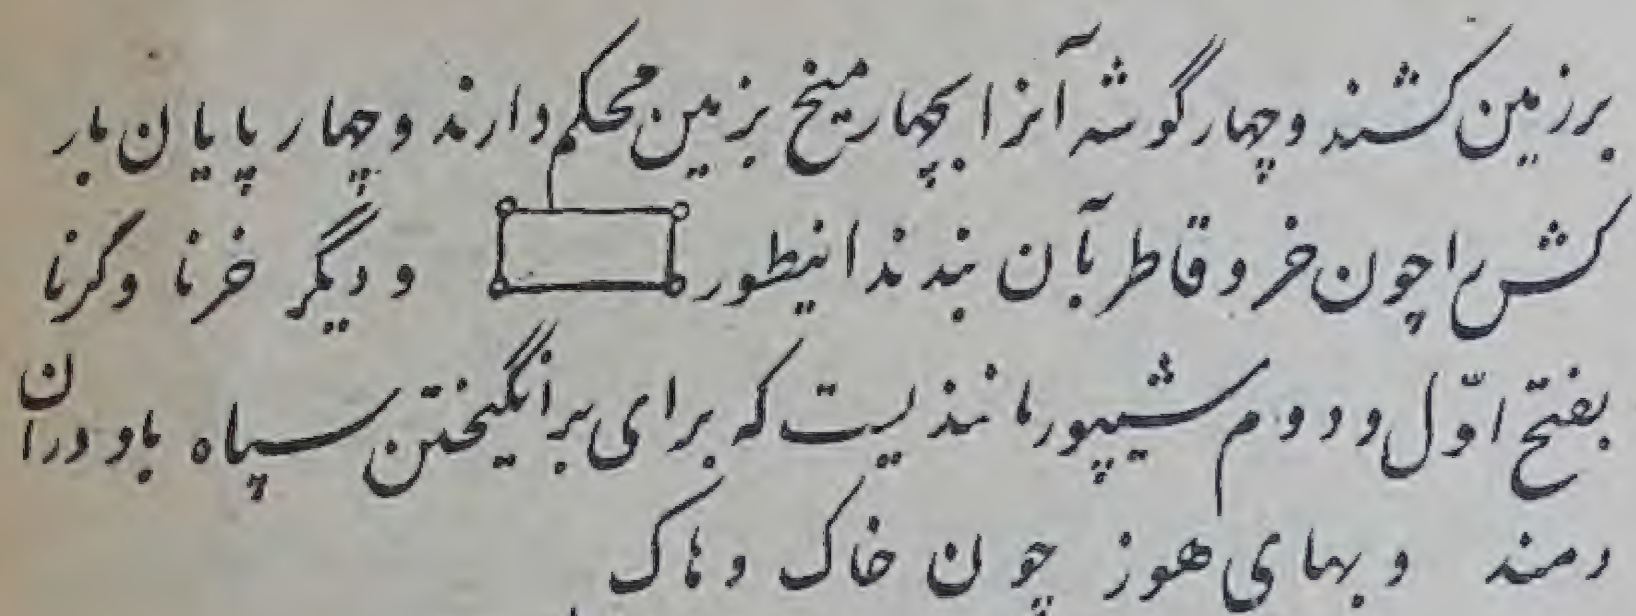 برزمین کشند و چهار گوشه آنرا بچهار میخ بزمین محکم دارند و چهار پایان بار
کش را چون خر و قاطر بآن بندند اینطور و دیگر خرنا و کرنا
بفتح اوّل و دوم شیپور مانندیست که برای برانگیختن سپاه باد در آن
دمند و بهای هوز چون خاک و هاک